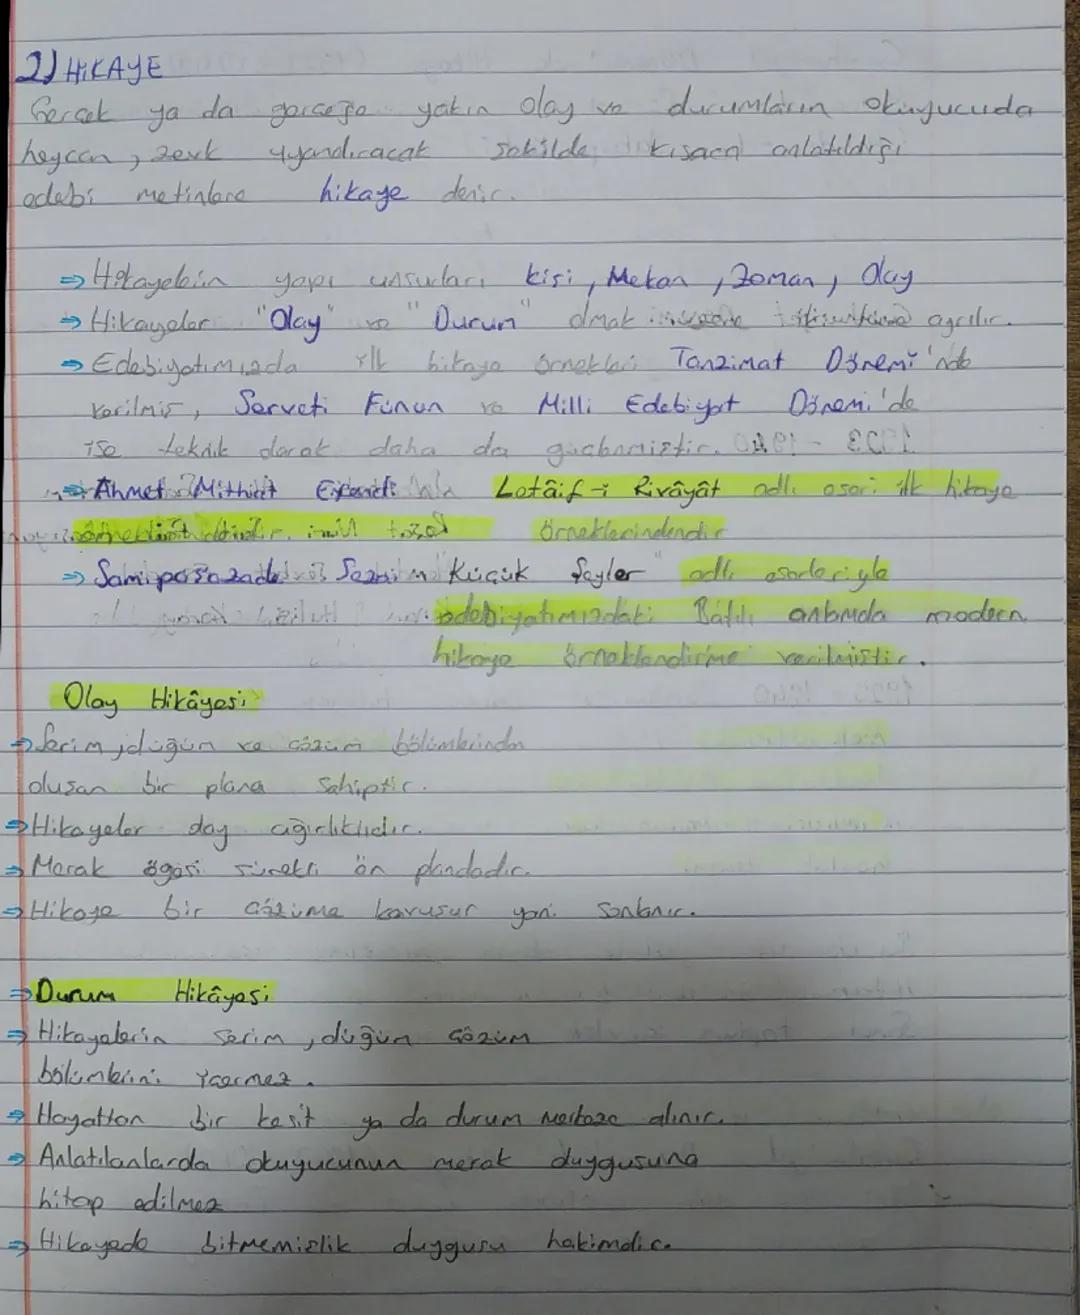 2) HİKAYE
Gerçek ya da gerçeğe yakın olay ve durumların okuyucuda
heycan, zevk uyandıracak şekilde kısaca anlatıldığı
edebi metinlere hikaye denir.
⇒ Hikayelerin yapı unsurları kişi, Mekan, Zaman, Olay
⇒ Hikayeler "Olay" ve "Durum" olmak ayrılır.
⇒ Edebiyatımızda ilk hikaye örnekleri Tanzimat Dönemi'nde
verilmiş, Serveti Fünun ve Milli Edebiyat Dönemi'de
ise teknik olarak daha da güçlenmiştir.
⇒ Ahmet Mithat Efendi'nin Letâif-i Rivâyât adlı eseri ilk hikaye
örneklerindendir
⇒ Samipaşazade Sezai'nin "Küçük Şeyler" adlı eserleriyle
edebiyatımızdaki Batılı anlamda modern
hikaye örneklendirme verilmiştir.
Olay Hikâyesi
⇒ Serim, düğüm ve çözüm bölümlerinden
oluşan bir plana sahiptir.
⇒ Hikayeler olay ağırlıklıdır.
⇒ Merak ögesi sürekli ön plandadır.
⇒ Hikaye bir çözüme kavuşur yani sonlanır.
⇒ Durum Hikâyesi
⇒ Hikayelerin serim, düğüm çözüm
bölümlerini içermez.
⇒ Hayattan bir kesit ya da durum merkeze alınır.
⇒ Anlatılanlarda okuyucunun merak duygusuna
hitap edilmez
⇒ Hikayede bitmemişlik duygusu hakimdir.